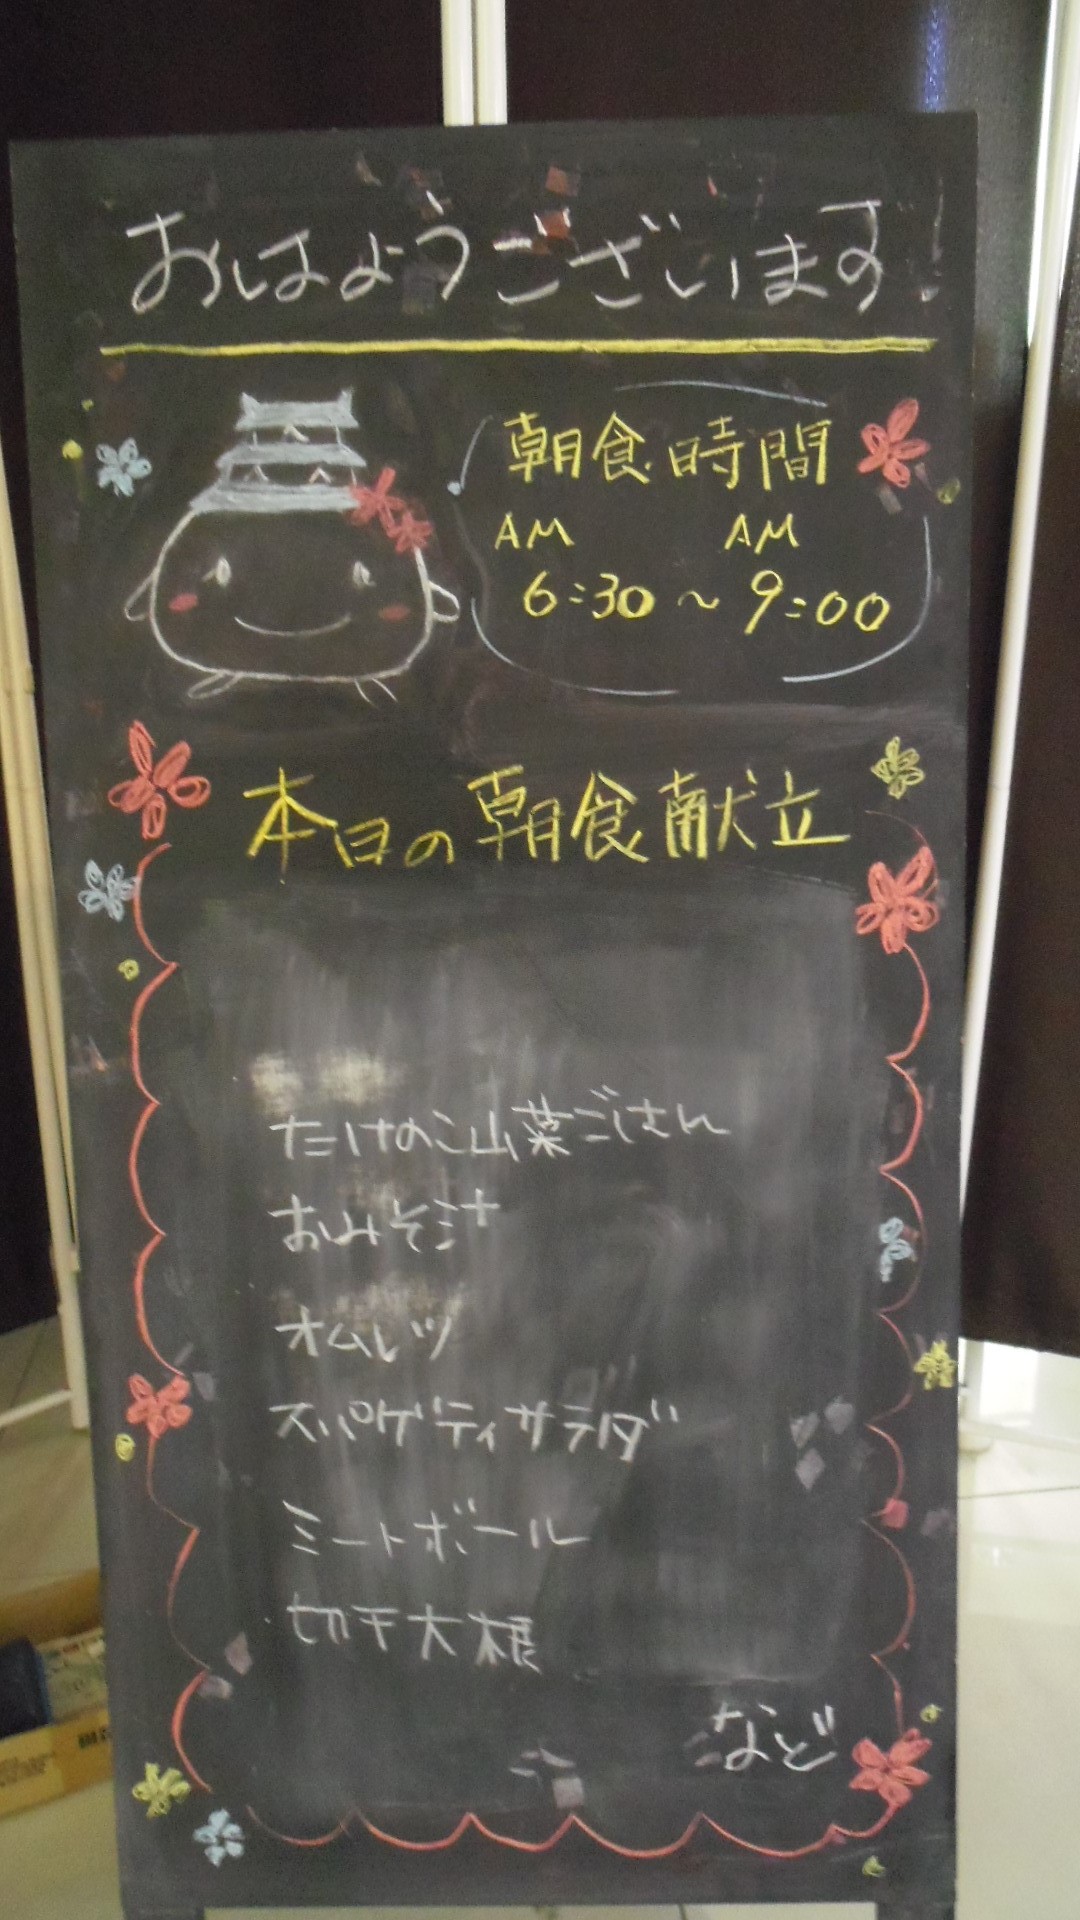 おはようございます!
朝食時間
AM AM
6:30 ~ 9:00
本日の朝食献立
たけのこ山菜ごはん
おみそ汁
オムレツ
スパゲティサラダ
ミートボール
切干大根
など